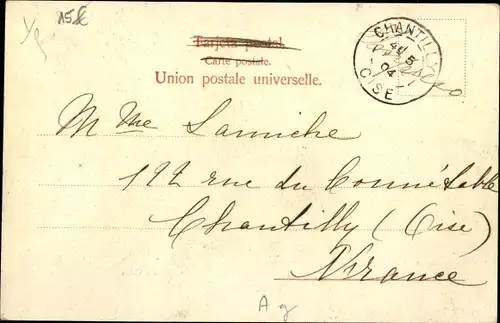 15 k
Tarjeta postal.
Carte postale.
Union postale universelle.
CHANTILLY
5
04
OISE
Mme Larriche
122 rue du Connétable
Chantilly (Oise)
France